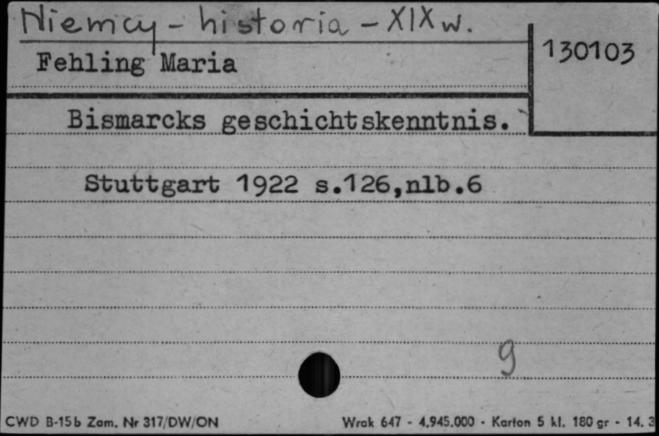 Niemcy - historia - XIX w.
Fehling Maria
130103
Bismarcks geschichtskenntnis.
Stuttgart 1922 s.126,nlb.6
9
CWD B-15b Zam. Nr 317/DW/ON
Wrak 647 - 4.945.000 - Karton 5 kl. 180 gr - 14. 3